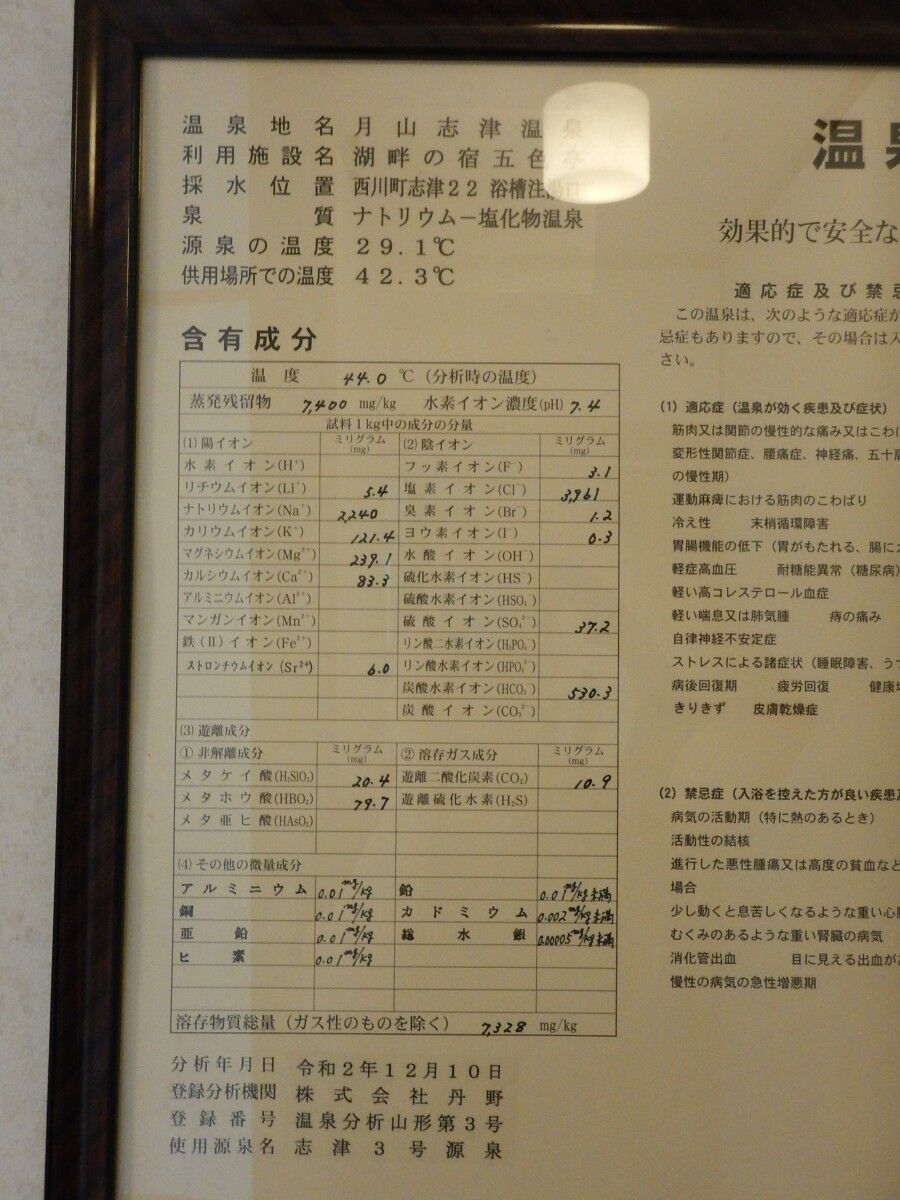 温泉地名 月山志津温泉
利用施設名 湖畔の宿五色亭
採水位置 西川町志津22 浴槽注湯口
泉質 ナトリウム−塩化物温泉
源泉の温度 29.1℃
供用場所での温度 42.3℃
含有成分
温度 44.0 ℃(分析時の温度)
蒸発残留物 7,400 mg/kg 水素イオン濃度(pH) 7.4
試料1kg中の成分の分量
(1)陽イオン ミリグラム(mg) (2)陰イオン ミリグラム(mg)
水素イオン(H⁺) フッ素イオン(F⁻) 3.1
リチウムイオン(Li⁺) 5.4 塩素イオン(Cl⁻) 3,961
ナトリウムイオン(Na⁺) 2,240 臭素イオン(Br⁻) 1.2
カリウムイオン(K⁺) 121.4 ヨウ素イオン(I⁻) 0.3
マグネシウムイオン(Mg²⁺) 239.1 水酸イオン(OH⁻)
カルシウムイオン(Ca²⁺) 83.3 硫化水素イオン(HS⁻)
アルミニウムイオン(Al³⁺) 硫酸水素イオン(HSO₄⁻)
マンガンイオン(Mn²⁺) 硫酸イオン(SO₄²⁻) 37.2
鉄(II)イオン(Fe²⁺) リン酸二水素イオン(H₂PO₄⁻)
ストロンチウムイオン(Sr²⁺) 6.0 リン酸水素イオン(HPO₄²⁻)
炭酸水素イオン(HCO₃⁻) 530.3
炭酸イオン(CO₃²⁻)
(3)遊離成分
①非解離成分 ミリグラム(mg) ②溶存ガス成分 ミリグラム(mg)
メタケイ酸(H₂SiO₃) 20.4 遊離二酸化炭素(CO₂) 10.9
メタホウ酸(HBO₂) 79.7 遊離硫化水素(H₂S)
メタ亜ヒ酸(HAsO₂)
(4)その他の微量成分
アルミニウム 0.01mg/kg 鉛 0.01mg/kg未満
銅 0.01mg/kg カドミウム 0.002mg/kg未満
亜鉛 0.01mg/kg 総水銀 0.00005mg/kg未満
ヒ素 0.01mg/kg
溶存物質総量(ガス性のものを除く) 7,328 mg/kg
分析年月日 令和2年12月10日
登録分析機関 株式会社丹野
登録番号 温泉分析山形第3号
使用源泉名 志津3号源泉
温泉
効果的で安全な
適応症及び禁忌
この温泉は、次のような適応症が
忌症もありますので、その場合は入
さい。
(1) 適応症(温泉が効く疾患及び症状)
筋肉又は関節の慢性的な痛み又はこわば
変形性関節症、腰痛症、神経痛、五十肩
の慢性期)
運動麻痺における筋肉のこわばり
冷え性 末梢循環障害
胃腸機能の低下(胃がもたれる、腸にガ
軽症高血圧 耐糖能異常(糖尿病)
軽い高コレステロール血症
軽い喘息又は肺気腫 痔の痛み
自律神経不安定症
ストレスによる諸症状(睡眠障害、うつ
病後回復期 疲労回復 健康増
きりきず 皮膚乾燥症
(2) 禁忌症(入浴を控えた方が良い疾患及
病気の活動期(特に熱のあるとき)
活動性の結核
進行した悪性腫瘍又は高度の貧血など
場合
少し動くと息苦しくなるような重い心肺
むくみのあるような重い腎臓の病気
消化管出血 目に見える出血があ
慢性の病気の急性増悪期